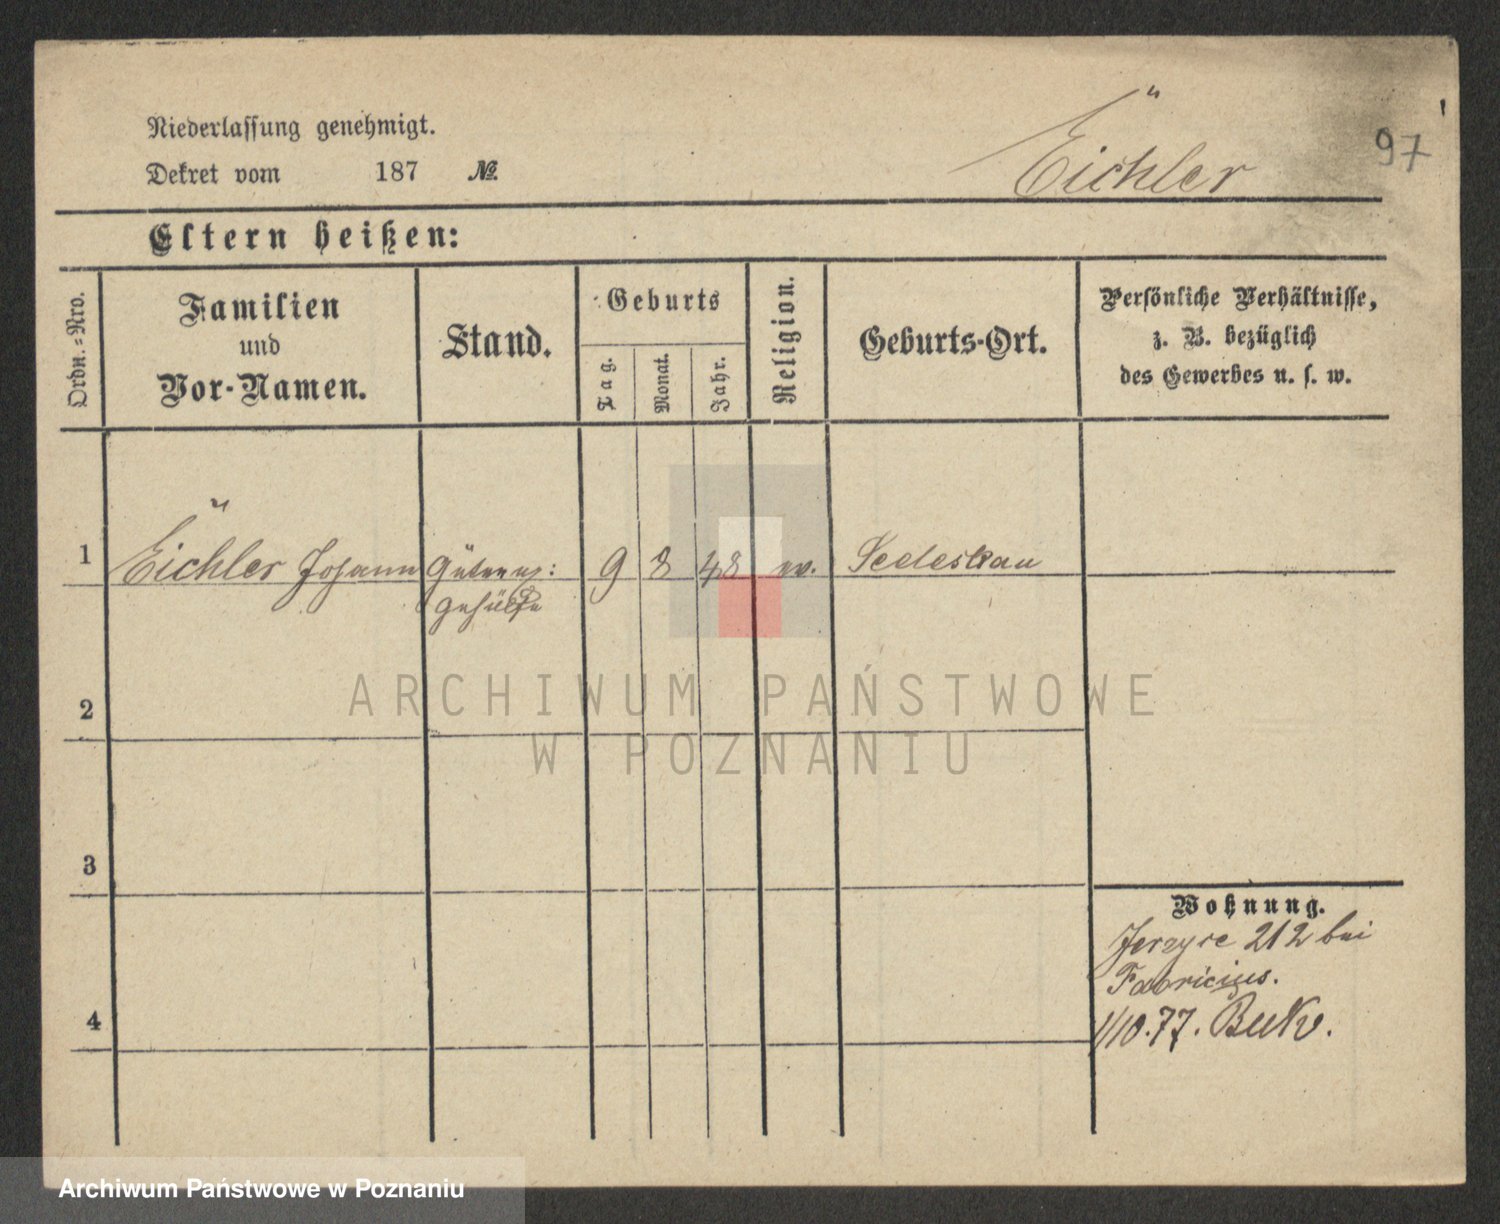 Niederlassung genehmigt.
Dekret vom 187 №.
Eichler
97
Eltern heißen:
Ordn.-Nro.
Familien
und
Vor-Namen.
Stand.
Geburts
Tag.
Monat.
Jahr.
Religion.
Geburts-Ort.
Persönliche Verhältnisse,
z. B. bezüglich
des Gewerbes u. s. w.
1 Eichler Johann 9 8 48 ev.
2
ARCHIWUM PAŃSTWOWE
W POZNANIU
3
Wohnung.
212 bei
Fabricius.
4
1/10.77.
Archiwum Państwowe w Poznaniu